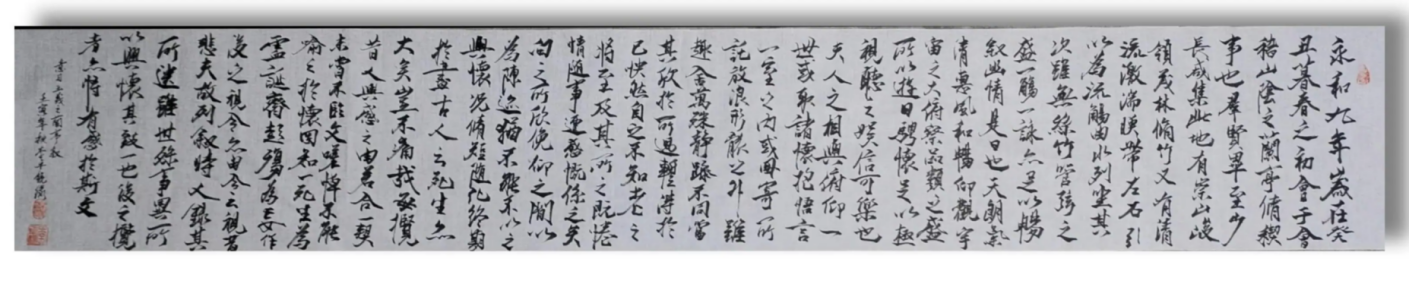 永和九年歲在癸
丑暮春之初會于會
稽山陰之蘭亭脩稧
事也羣賢畢至少
長咸集此地有崇山峻
領茂林脩竹又有清
流激湍暎帶左右引
以為流觴曲水列坐其
次雖無絲竹管弦之
盛一觴一詠亦足以暢
叙幽情是日也天朗氣
清惠風和暢仰觀宇
宙之大俯察品類之盛
所以遊目騁懷足以極
視聽之娛信可樂也
夫人之相與俯仰一
世或取諸懷抱悟言
一室之内或因寄所
託放浪形骸之外雖
趣舍萬殊靜躁不同當
其欣於所遇輒得於
己快然自足不知老之
將至及其所之既惓
情隨事遷感慨係之矣
向之所欣俛仰之閒以
為陳迹猶不能不以之
興懷況脩短隨化終期
於盡古人云死生亦
大矣豈不痛哉每攬
昔人興感之由若合一契
未嘗不臨文嗟悼不能
喻之於懷固知一死生為
虛誕齊彭殤為妄作
後之視今亦由今之視昔
悲夫故列叙時人錄其
所述雖世殊事異所
以興懷其致一也後之攬
者亦將有感於斯文